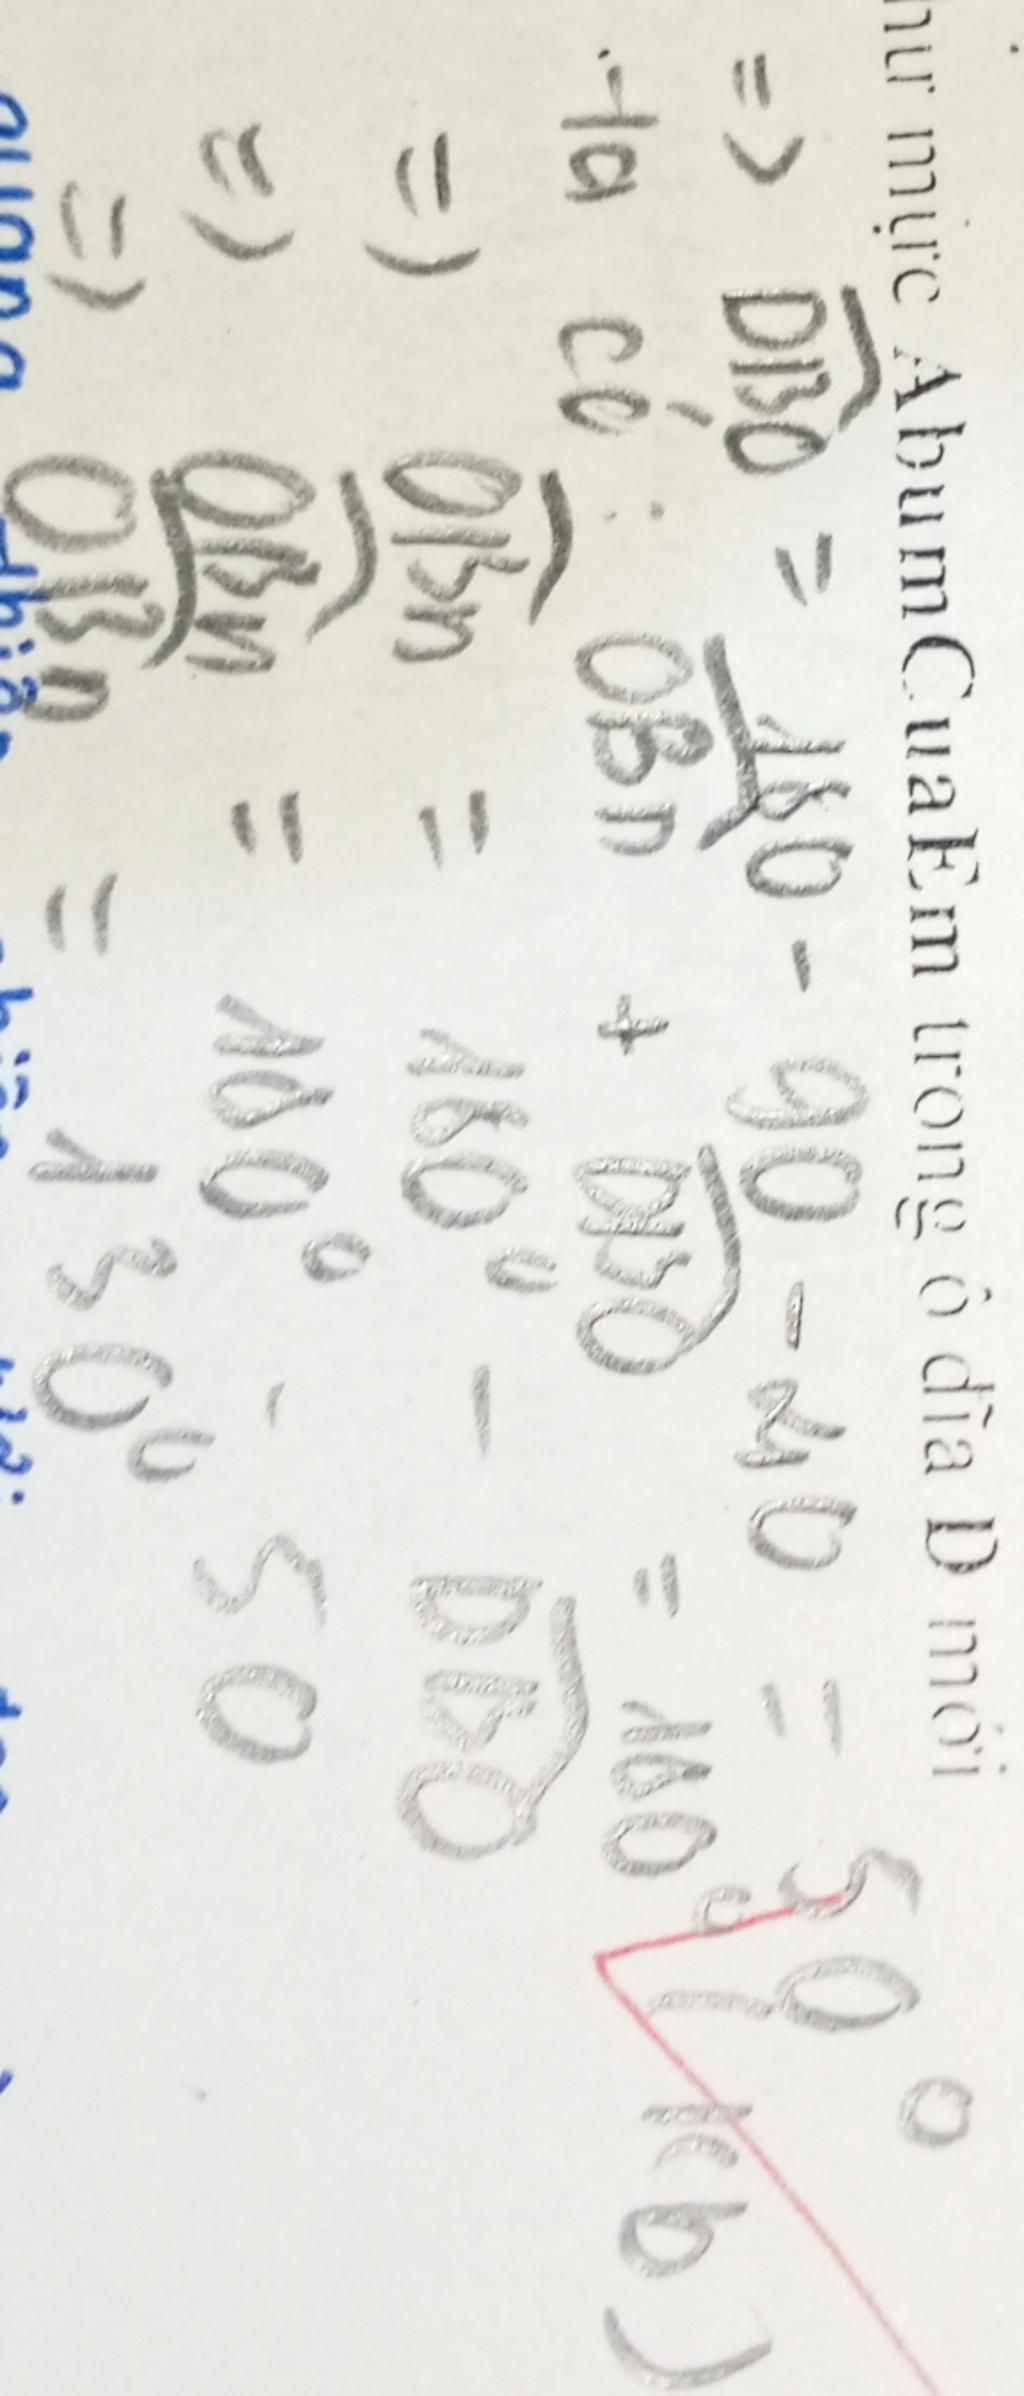 mục AbumCuaEm trong ổ đĩa D mới
=> DBO = 180 - 90 - 40 = 50°
Ta có: OBn + DBO = 180° (kb)
=> OBn = 180° - DBO
=> OBn = 180° - 50
=> OBn = 130°